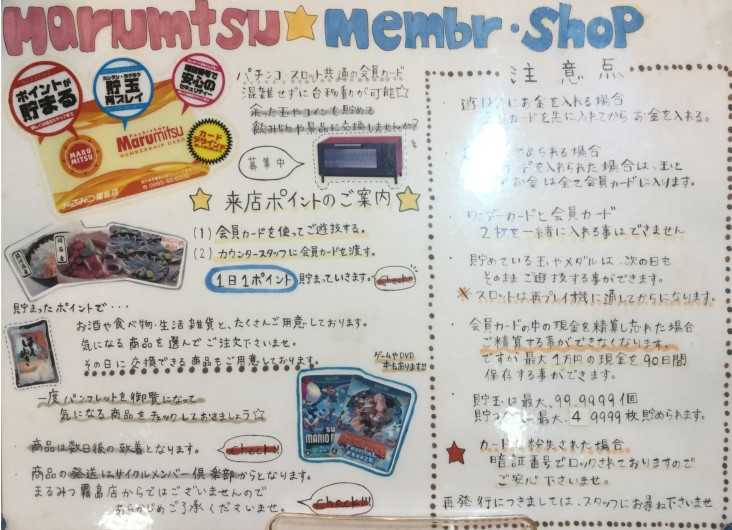 Marumtsu☆membr・shop
ポイントが貯まる
カンタン・ラクラク
貯玉
再スレイ
暗証番号で
安心の
セキュリティー
Marumitsu
MEMBERSHIP CARD
MARU
MITSU
カード
デザイン
パチンコ、スロット共通の会員カード
混雑せずに台移動が可能☆
余った玉やコインを貯めて
飲み物や景品に交換しませんか?
募集中
☆来店ポイントのご案内☆
(1) 会員カードを使ってご遊技する。
(2) カウンタースタッフに会員カードを渡す。
1日1ポイント 貯まっていきます。 Check!
貯まったポイントで・・・
お酒や食べ物・生活雑貨と、たくさんご用意しております。
気になる商品を選んでご注文下さいませ。
その日に交換できる商品もご用意しております。
ゲームやDVD
本もあります!!
一度パンフレットを御覧になって
気になる商品をチェックしておきましょう☆
・商品は数日後の到着となります。 Check!!
・商品の発送はサイクルメンバー倶楽部からとなります。
まるみつ霧島店からではございませんので
あらかじめご了承くださいませ。 Check!!!
注意点
にお金を入れる場合
カードを先に入れてからお金を入れる。
められる場合
を入れられた場合は、玉と
お金は全て会員カードに入ります。
・カードと会員カード
2枚を一緒に入れる事はできません
・貯めている玉やメダルは、次の日も
そのままご遊技する事ができます。
※スロットは再プレイ機に通してからになります。
・会員カードの中の現金を精算し忘れた場合
ご精算する事ができなくなります。
ですが最大1万円の現金を90日間
保存する事ができます。
・貯玉は最大、99,9999個
は最大、49999枚貯められます。
★カードを紛失された場合
暗証番号でロックされておりますので
ご安心下さいませ。
再発行につきましては、スタッフにお尋ね下さいませ